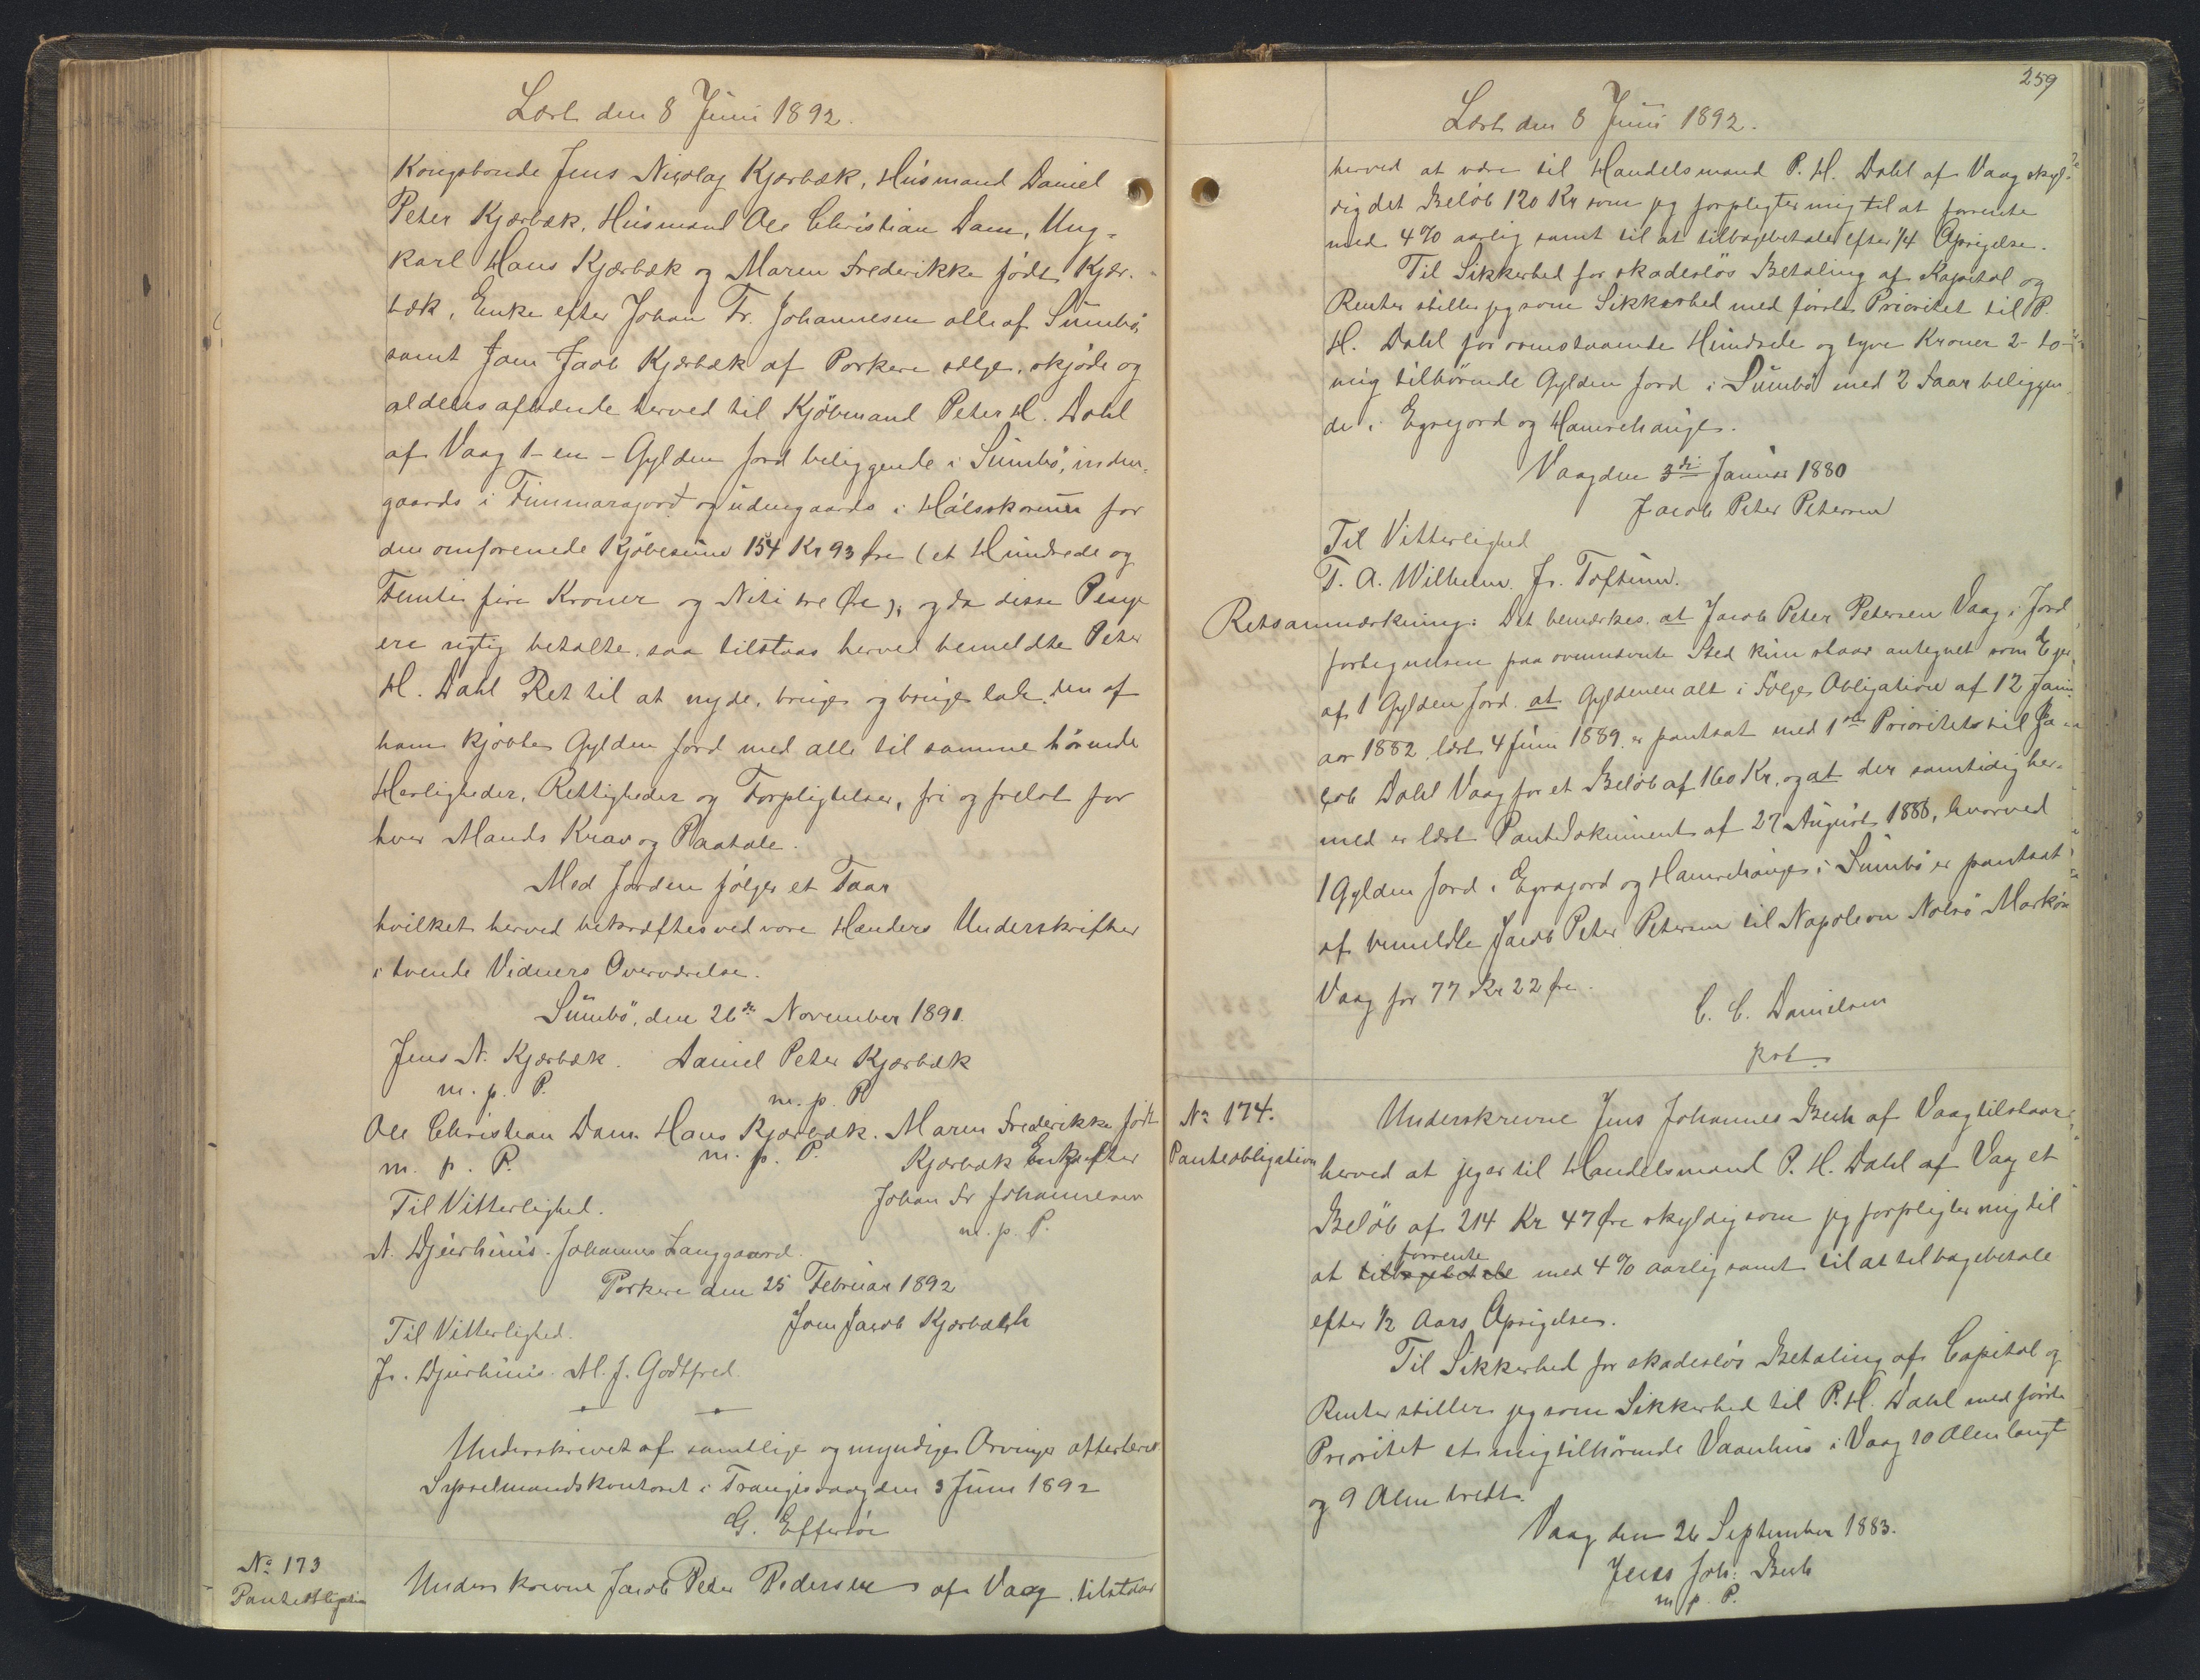 Læst den 8 Juni 1892.
Kongsbonde Jens Nicolaj Kjærbæk, Husmand Daniel
Peter Kjærbæk, Husmand Ole Christian Dam, Ung-
karl Hans Kjærbæk og Maren Frederikke født Kjær-
bæk, Enke efter Johan Fr. Johannesen alle af Sumbø,
samt Joen Jacob Kjærbæk af Porkere sælge, skjøde og
aldeles afhænde herved til Kjøbmand Peter H. Dahl
af Vaag 1 - en - Gylden Jord beliggende i Sumbø, inden-
gaards i Timmaragord og udengaards i for
den omforenede Kjøbesum 154 Kr 93 Øre (et Hundrede og
Femti fire Kroner og Niti tre Øre); og da disse Penge
ere rigtig betalte, saa tilstaas herved bemeldte Peter
H. Dahl Ret til at nyde, bruge og bruge lade den af
ham kjøbte Gylden Jord med alle til samme hørende
Herligheder, Rettigheder og Forpligtelser, fri og frelst for
hver Mands Krav og Paatale.
Med Jorden følger et Faar
hvilket herved bekræftes ved vore Hænders Underskrifter
i tvende Vidners Overværelse.
Sumbø, den 26de November 1891.
Jens N. Kjærbæk. Daniel Peter Kjærbæk
m. p. P. m. p. P.
Ole Christian Dam. Hans Kjærbæk. Maren Frederikke født
m. p. P. m. p. P. Kjærbæk Enke efter
Til Vitterlighed. Johan Fr Johannesen
m. p. P.
N. Djurhuus. Johannes Langgaard.
Porkere den 25 Februar 1892
Til Vitterlighed. Joen Jacob Kjærbækh
Js. Djurhuus. M. J. Godtfred.
Underskrevet af samtlige og myndige Arvinger
Sysselmandskontoret i Trangisvaag den 3 Juni 1892
G. Effersøe
No 173
Panteobligation
Underskrevne Jacob Peter Pedersen af Vaag tilstaar
259
Læst den 8 Juni 1892.
herved at være til Handelsmand P. H. Dahl af Vaag skyl-
dig det Beløb 120 Kr som jeg forpligter mig til at forrente
med 4% aarlig samt til at tilbagebetale efter 1/4 Opsigelse.
Til Sikkerhed for skadesløs Betaling af Kapital og
Renter stiller jeg som Sikkerhed med første Prioritet til P.
H. Dahl for ovenstaaende Hundrede og tyve Kroner 2 - to -
mig tilhørende Gylden Jord i Sumbø med 2 Faar beliggen-
de i Egregord og Hamrehauge.
Vaag den 3die Januar 1880
Jacob Peter Petersen
Til Vitterlighed
T. A. Wilhelm. Js. Toftum.
Retsanmærkning: Det bemærkes, at Jacob Peter Petersen Vaag i Jord
fortegnelsen paa ovennævnte Sted kun staar antegnet som Ejer
af 1 Gylden Jord, at Gyldenen alt i Følge Obligation af 12 Janu-
ar 1882, læst 4 Juni 1889, er pantsat med 1ste Prioritet til Ja-
cob Dahl Vaag for et Beløb af 160 Kr, og at der samtidig her-
med er læst Pantedokument af 27 August 1886, hvorved
1 Gylden Jord i Egregord og Hamrehauge i Sumbø er pantsat
af bemeldte Jacob Peter Petersen til Napoleon Nolsø
Vaag for 77 Kr 22 Øre.
C. C. Danielsen
kst.
No 174.
Panteobligation
Underskrevne Jens Johannes Bech af Vaag tilstaar
herved at jeg er til Handelsmand P. H. Dahl af Vaag et
Beløb af 214 Kr 47 Øre skyldig som jeg forpligter mig til
forrente
at tilbagebetale med 4% aarlig samt til at tilbagebetale
efter 1/2 Aars Opsigelse.
Til Sikkerhed for skadesløs Betaling af Capital og
Renter stiller jeg som Sikkerhed til P. H. Dahl med første
Prioritet et mig tilhørende Vaanhus i Vaag 10 Alen langt
og 9 Alen bredt.
Vaag den 26 September 1883.
Jens Joh: Bech
m. p. P.